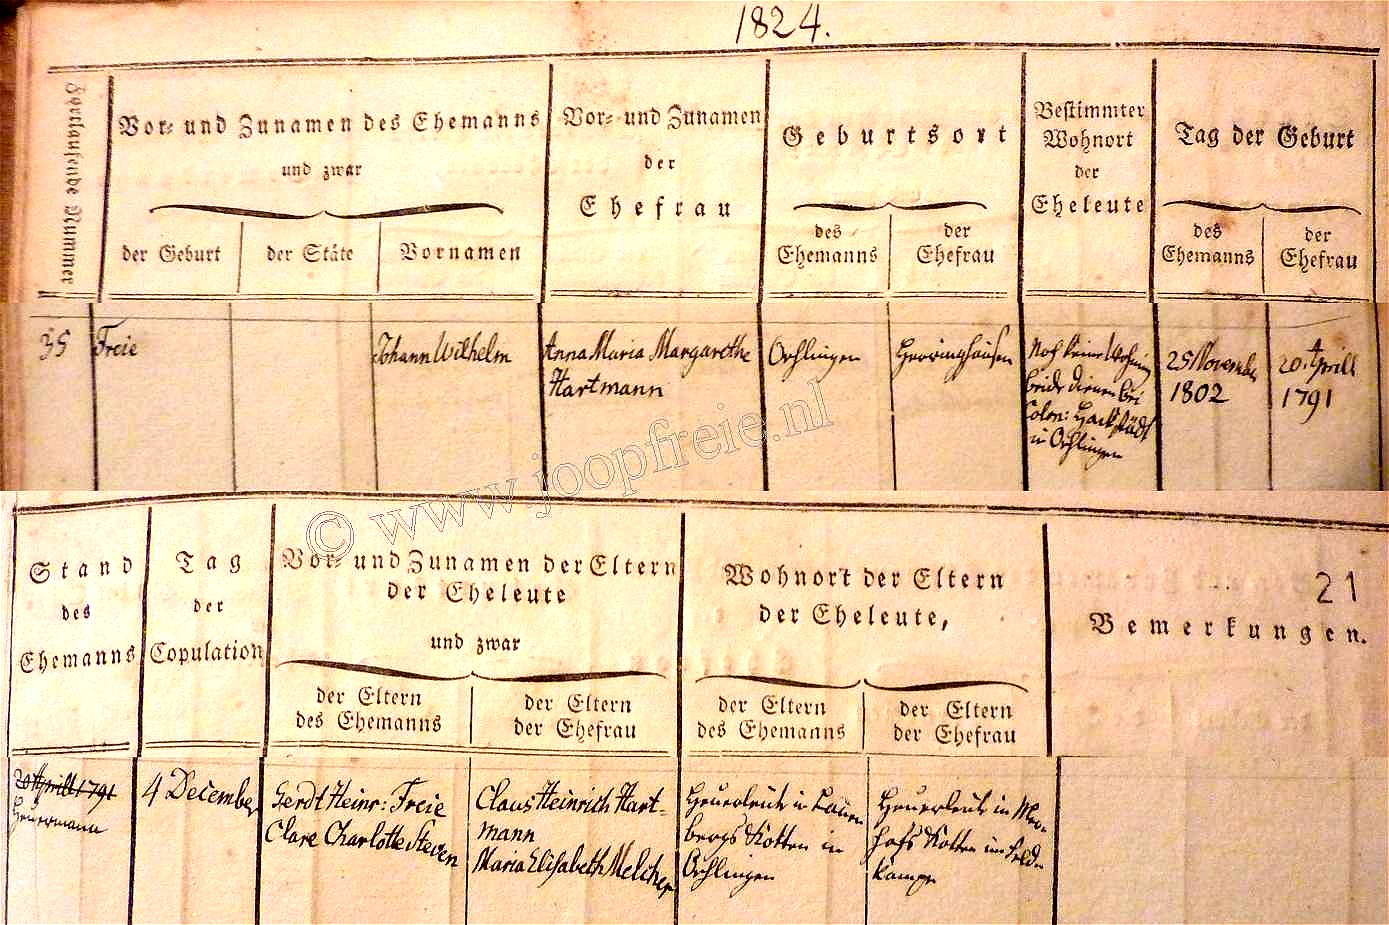 1824.
Fortlaufende Nummer
Vor- und Zunamen des Ehemanns
und zwar
der Geburt
der Stäte
Vornamen
Vor- und Zunamen
der
Ehefrau
Geburtsort
des
Ehemanns
der
Ehefrau
Bestimmter
Wohnort
der
Eheleute
Tag der Geburt
des
Ehemanns
der
Ehefrau
35
Freie
Johann Wilhelm
Anna Maria Margarethe
Hartmann
Oehlingen
Herringhausen
Noch keine
beide dienen bei
Colon: Hackstädt
in Oehlingen
25 November
1802
20. Aprill
1791
© www.joopfreie.nl
Stand
des
Ehemanns
Tag
der
Copulation
Vor- und Zunamen der Eltern
der Eheleute
und zwar
der Eltern
des Ehemanns
der Eltern
der Ehefrau
Wohnort der Eltern
der Eheleute,
der Eltern
des Ehemanns
der Eltern
der Ehefrau
21
Bemerkungen.
20 Aprill 1791
Heuermann
4 December
Gerdt Heinr: Freie
Clare Charlotte Steven
Claus Heinrich Hart-
mann
Maria Elisabeth Melcher
Heuerleute in
bergs Kotten in
Oehlingen
Heuerleute in
hofs Kotten im Felde
kampe